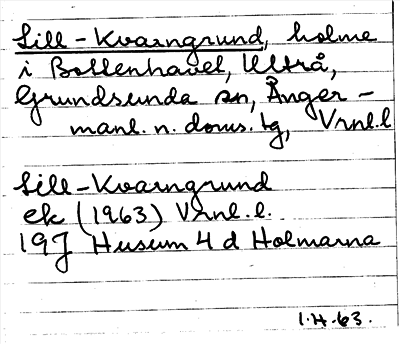 Lill-Kvarngrund, holme
i Bottenhavet, Ultrå,
Grundsunda sn, Ånger-
manl. n. doms. tg, Vrnl.l
Lill-Kvarngrund
ek (1963) Vrnl.l.
19J Husum 4 d Holmarna
I.H.63.